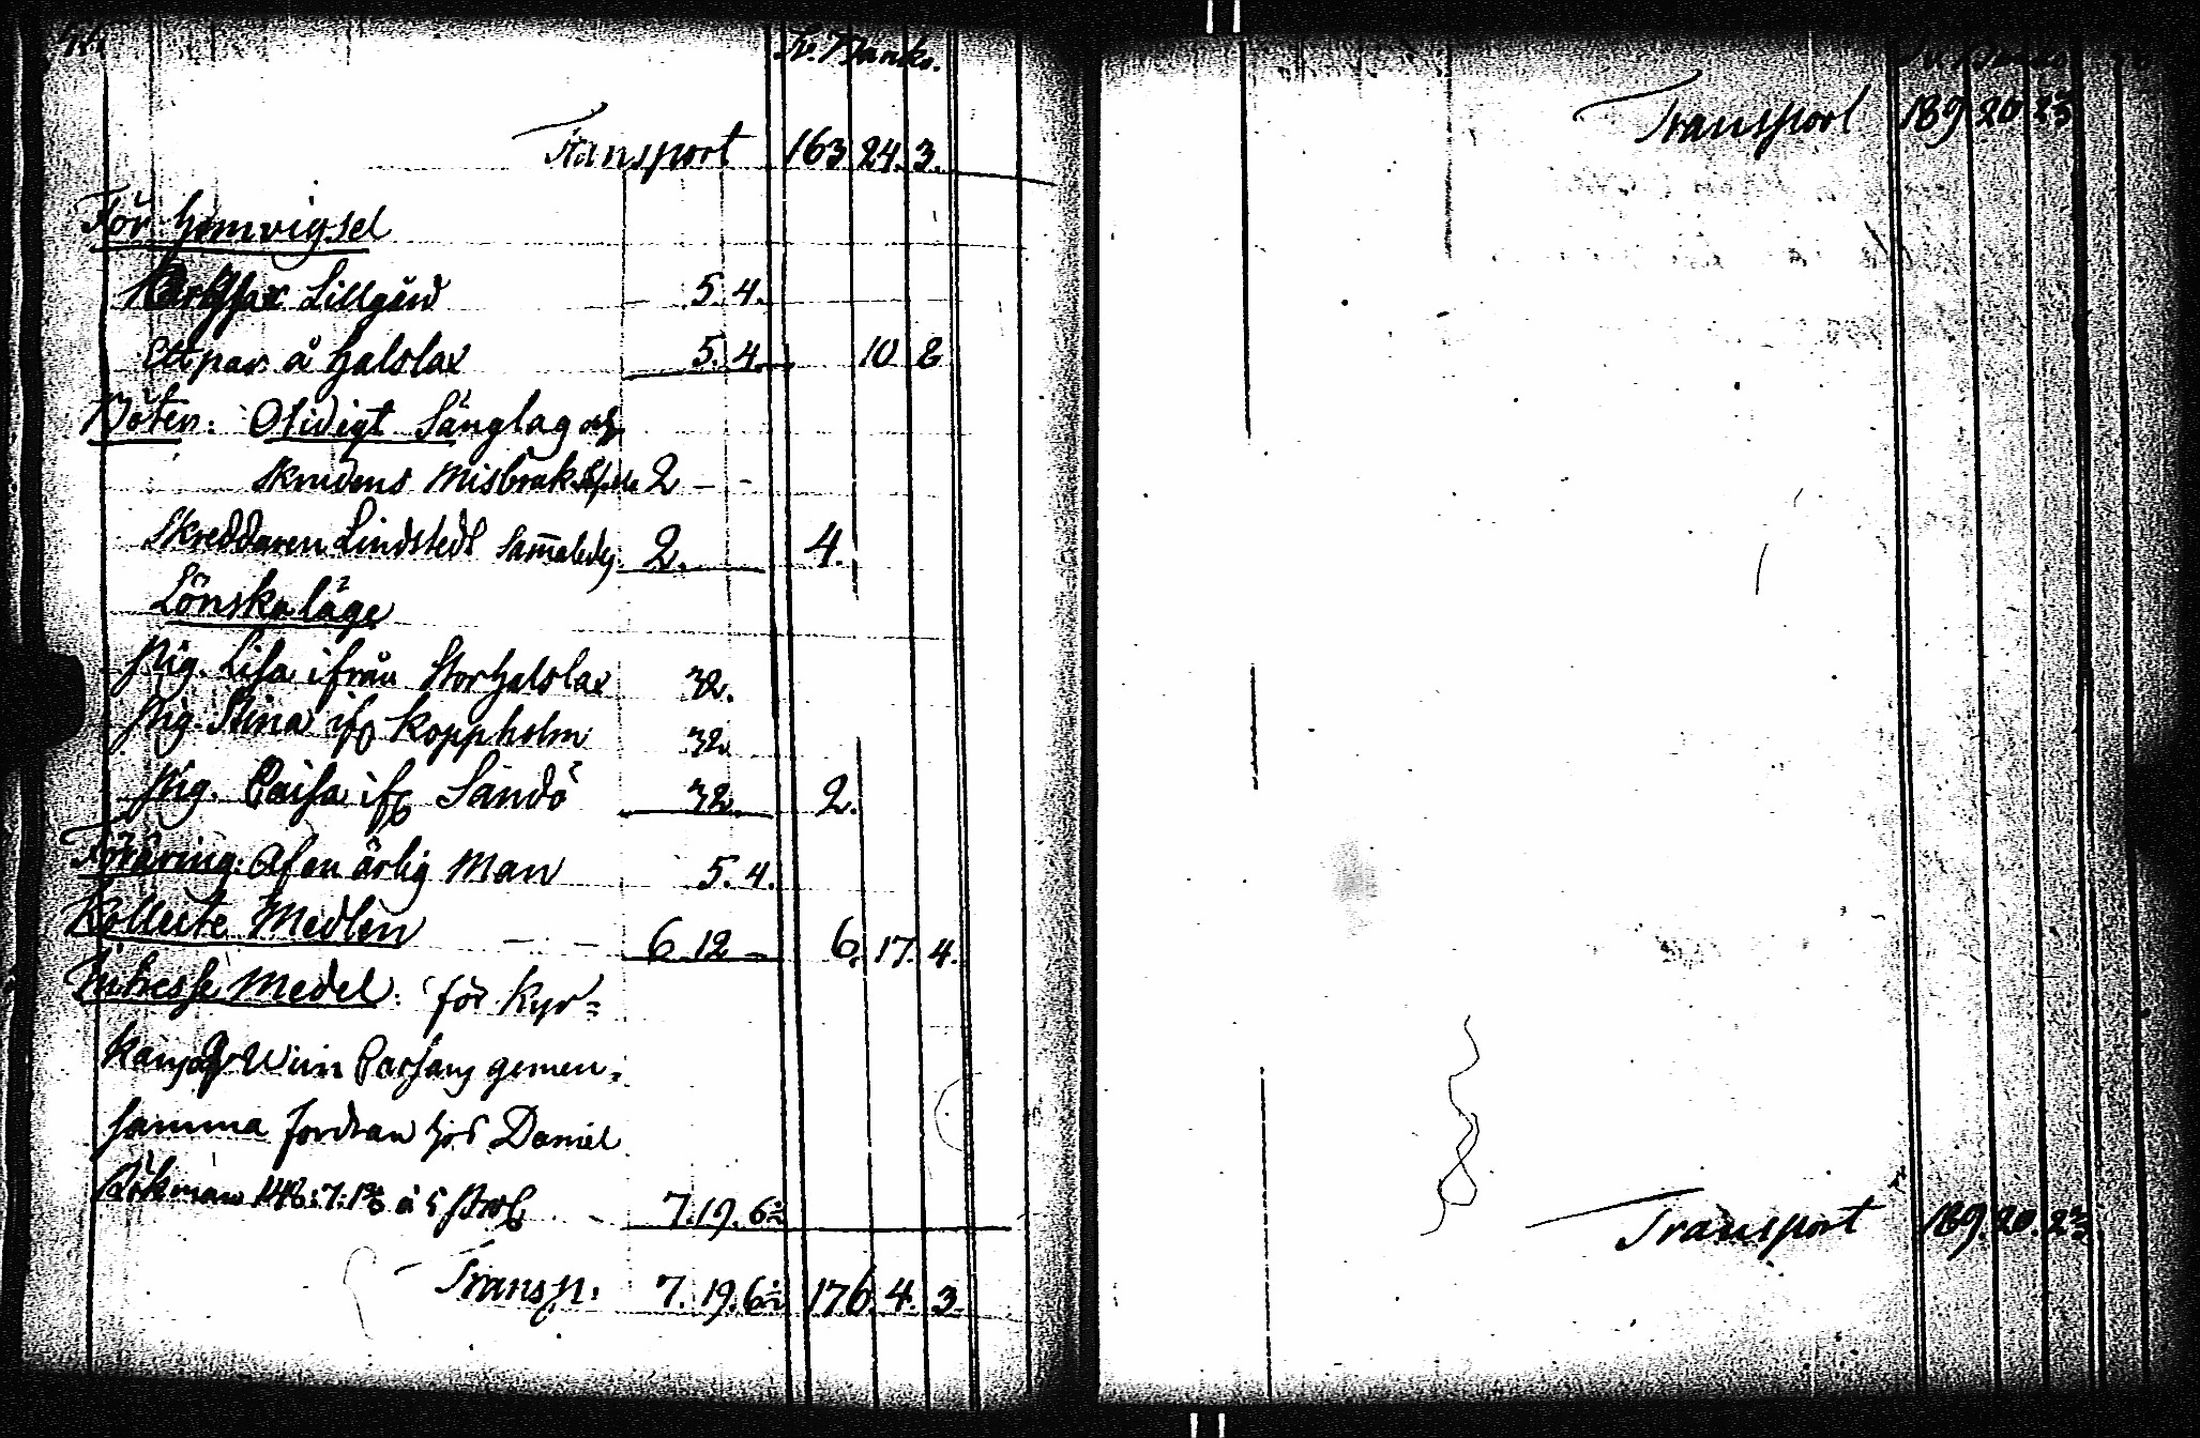 R. Banko.
Transport 163 24. 3.
För hemvigsel
Lillgård 5. 4.
Ett par å Halslax 5. 4. 10 8
Böter: Otidigt Sänglag och
skrudens misbruk 2 - -
Skreddaren Lindstedt Sammaledes 2. 4.
Lönskaläge
Pig. Lisa ifrån Storhalslax 32.
Pig. Stina ifr Koppholm 32
Pig. Caisa ifr Sandö 32 2.
Föräring: Af en ärlig Man 5. 4.
Kollecte Medlen 6 12 - 6. 17. 4.
Intresse Medel: för Kyr=
kans gemen=
samma fordran hos Daniel
à 5 7. 19. 6
Transp. 7. 19. 6 176. 4. 3.
Transport 189 20 2
Transport 189. 20. 2